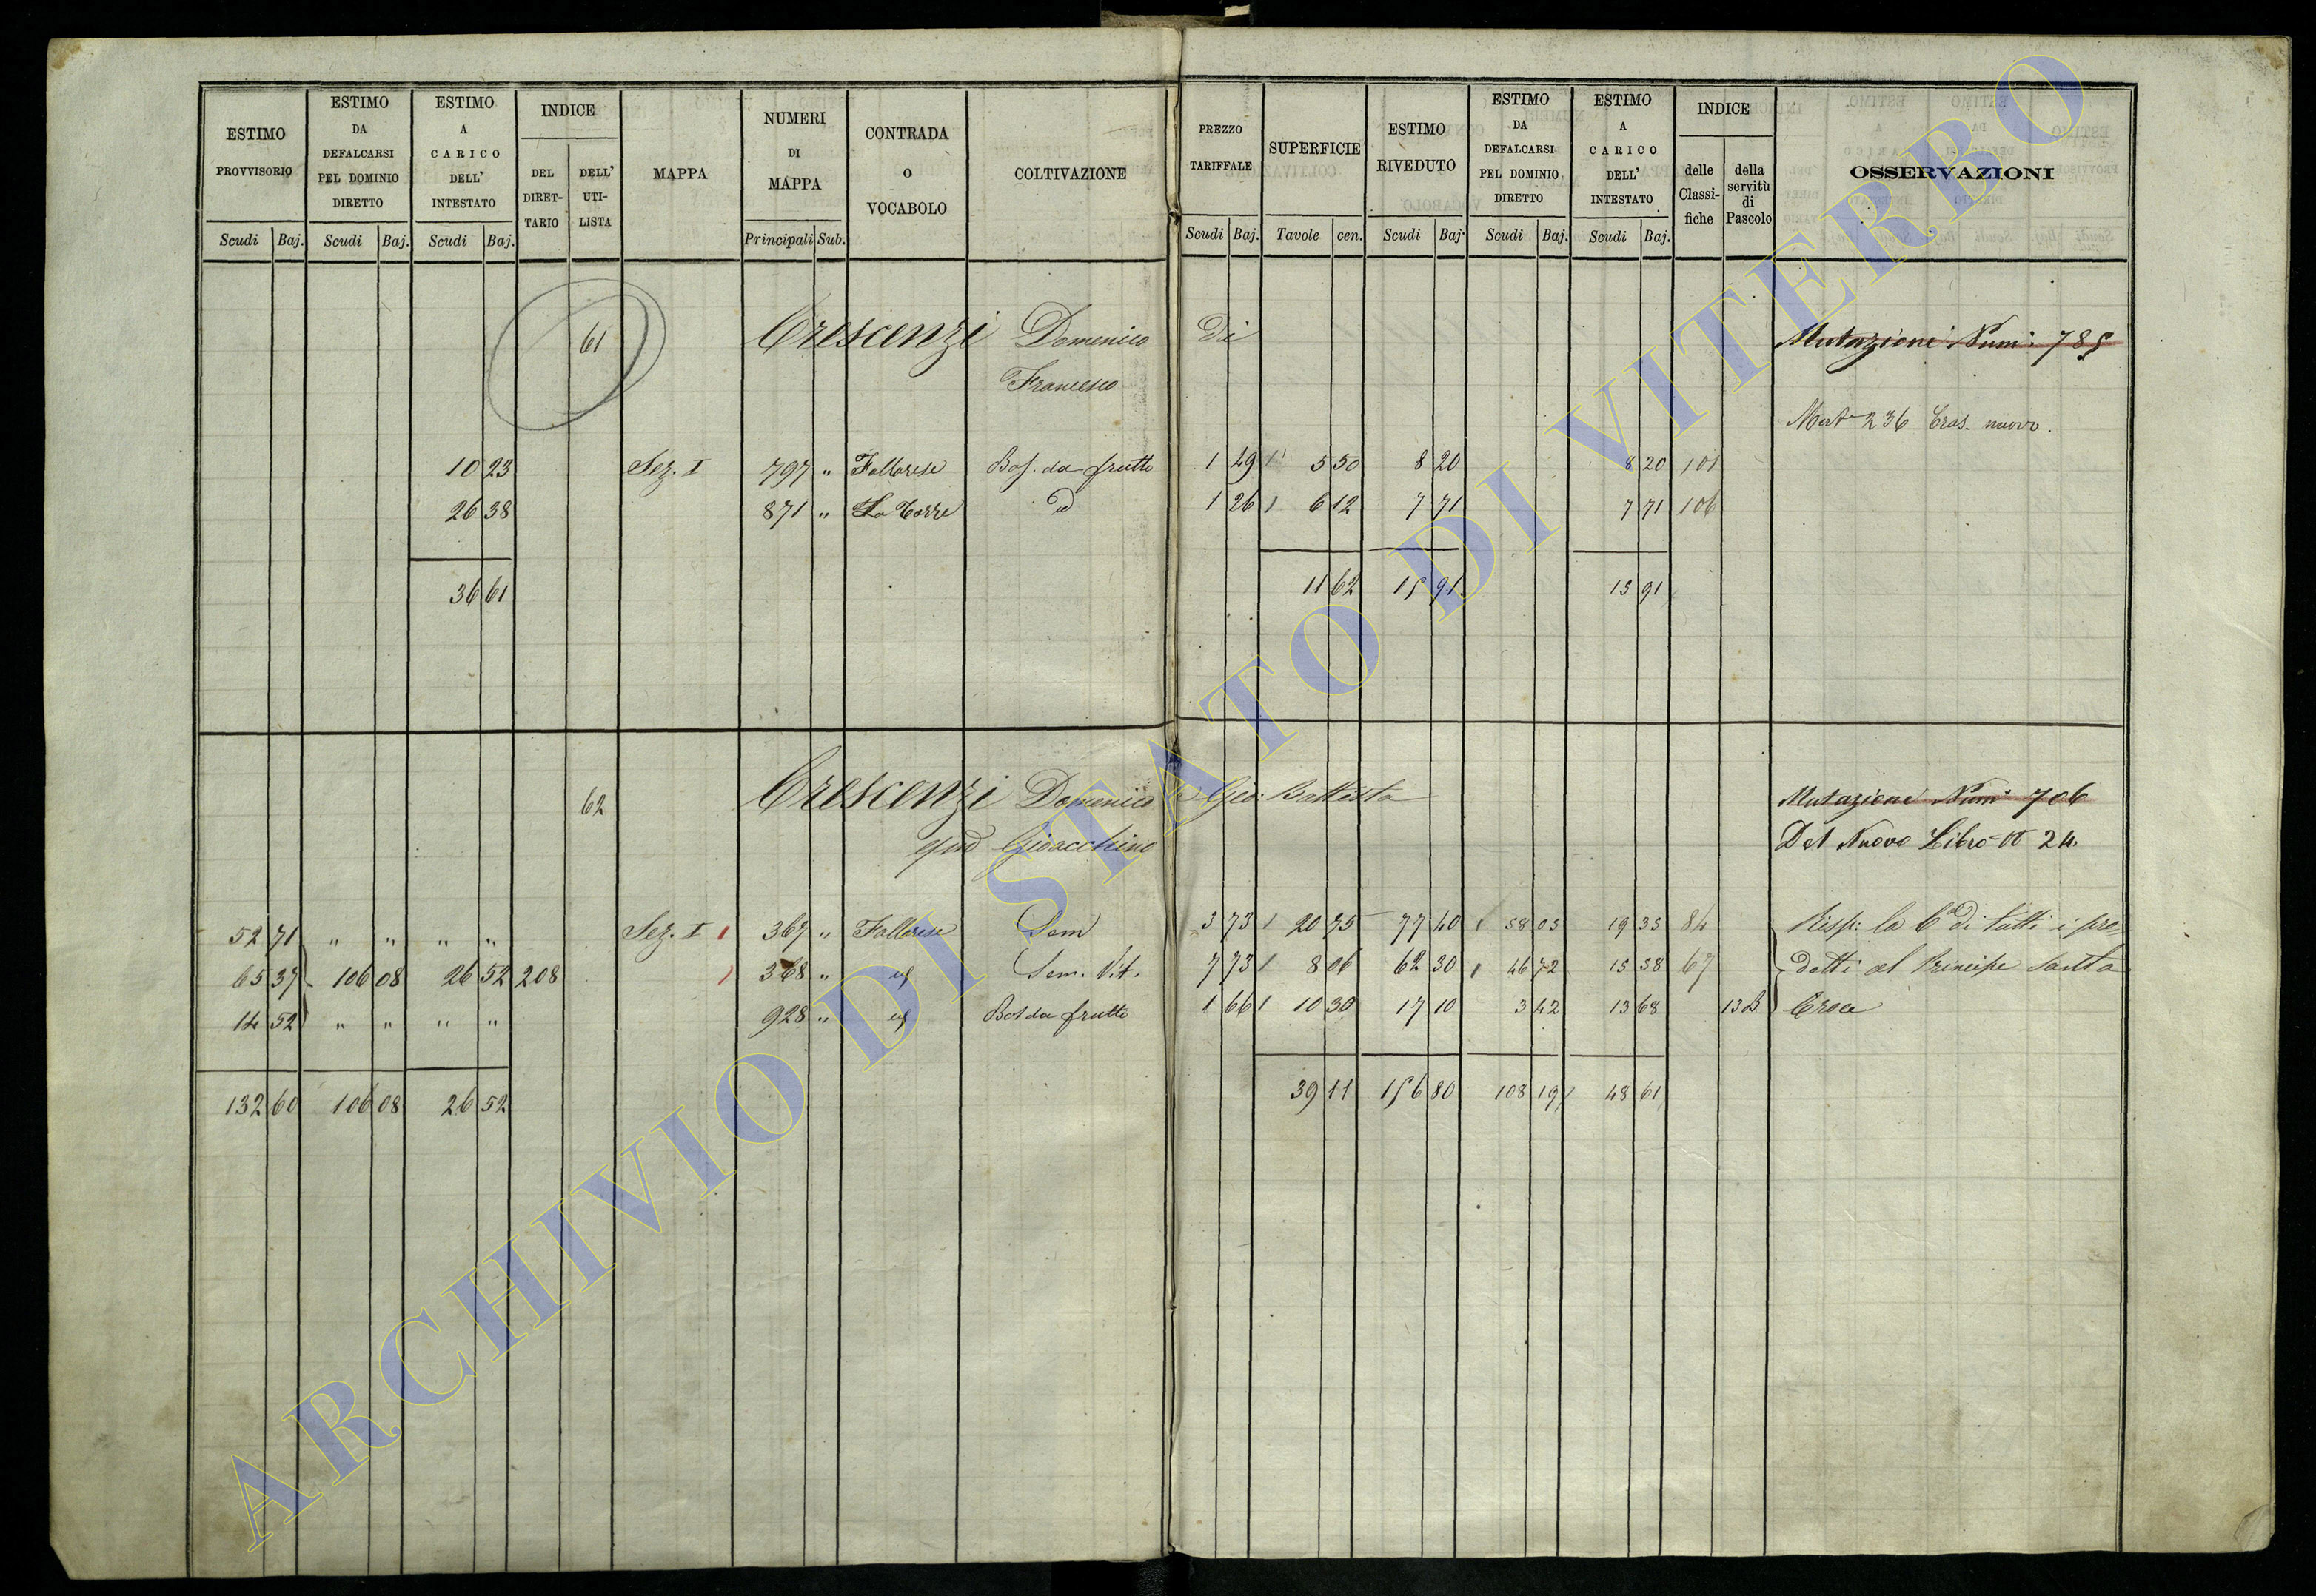 ESTIMO PROVVISORIO Scudi Baj.
ESTIMO DA DEFALCARSI PEL DOMINIO DIRETTO Scudi Baj.
ESTIMO A CARICO DELL' INTESTATO Scudi Baj.
INDICE DEL DIRET-TARIO DELL' UTI-LISTA
MAPPA
NUMERI DI MAPPA Principali Sub.
CONTRADA O VOCABOLO
COLTIVAZIONE
PREZZO TARIFFALE Scudi Baj.
SUPERFICIE Tavole cen.
ESTIMO RIVEDUTO Scudi Baj.
ESTIMO DA DEFALCARSI PEL DOMINIO DIRETTO Scudi Baj.
ESTIMO A CARICO DELL' INTESTATO Scudi Baj.
INDICE delle Classi-fiche della servitù di Pascolo
OSSERVAZIONI
61 Crescenzi Domenico Di Mutazioni Num: 785
Francesco
Mut 236 Cras. nuovo.
10 23 Sez. I 797 " Fallarese Bos. da frutto 1 49 5 50 8 20 8 20 101
26 38 871 " La Torre id 1 26 6 12 7 71 7 71 106
36 61 11 62 15 91 15 91
62 Crescenzi Domenico Gio: Battista Mutazione Num: 706
qm Gioacchino Del Nuovo Libro 24.
52 71 " " " " Sez. I 367 " Fallarese Sem 3 73 20 75 77 40 58 05 19 35 84 Risp: la Cª di tutti i pre
65 37 106 08 26 52 208 368 " id Sem. Vit. 7 73 8 06 62 30 46 72 15 58 67 detti al Principe Santa
14 52 " " " " 928 " id Bos da frutto 1 66 10 30 17 10 3 42 13 68 13 B Croce
132 60 106 08 26 52 39 11 156 80 108 19 48 61
ARCHIVIO DI STATO DI VITERBO